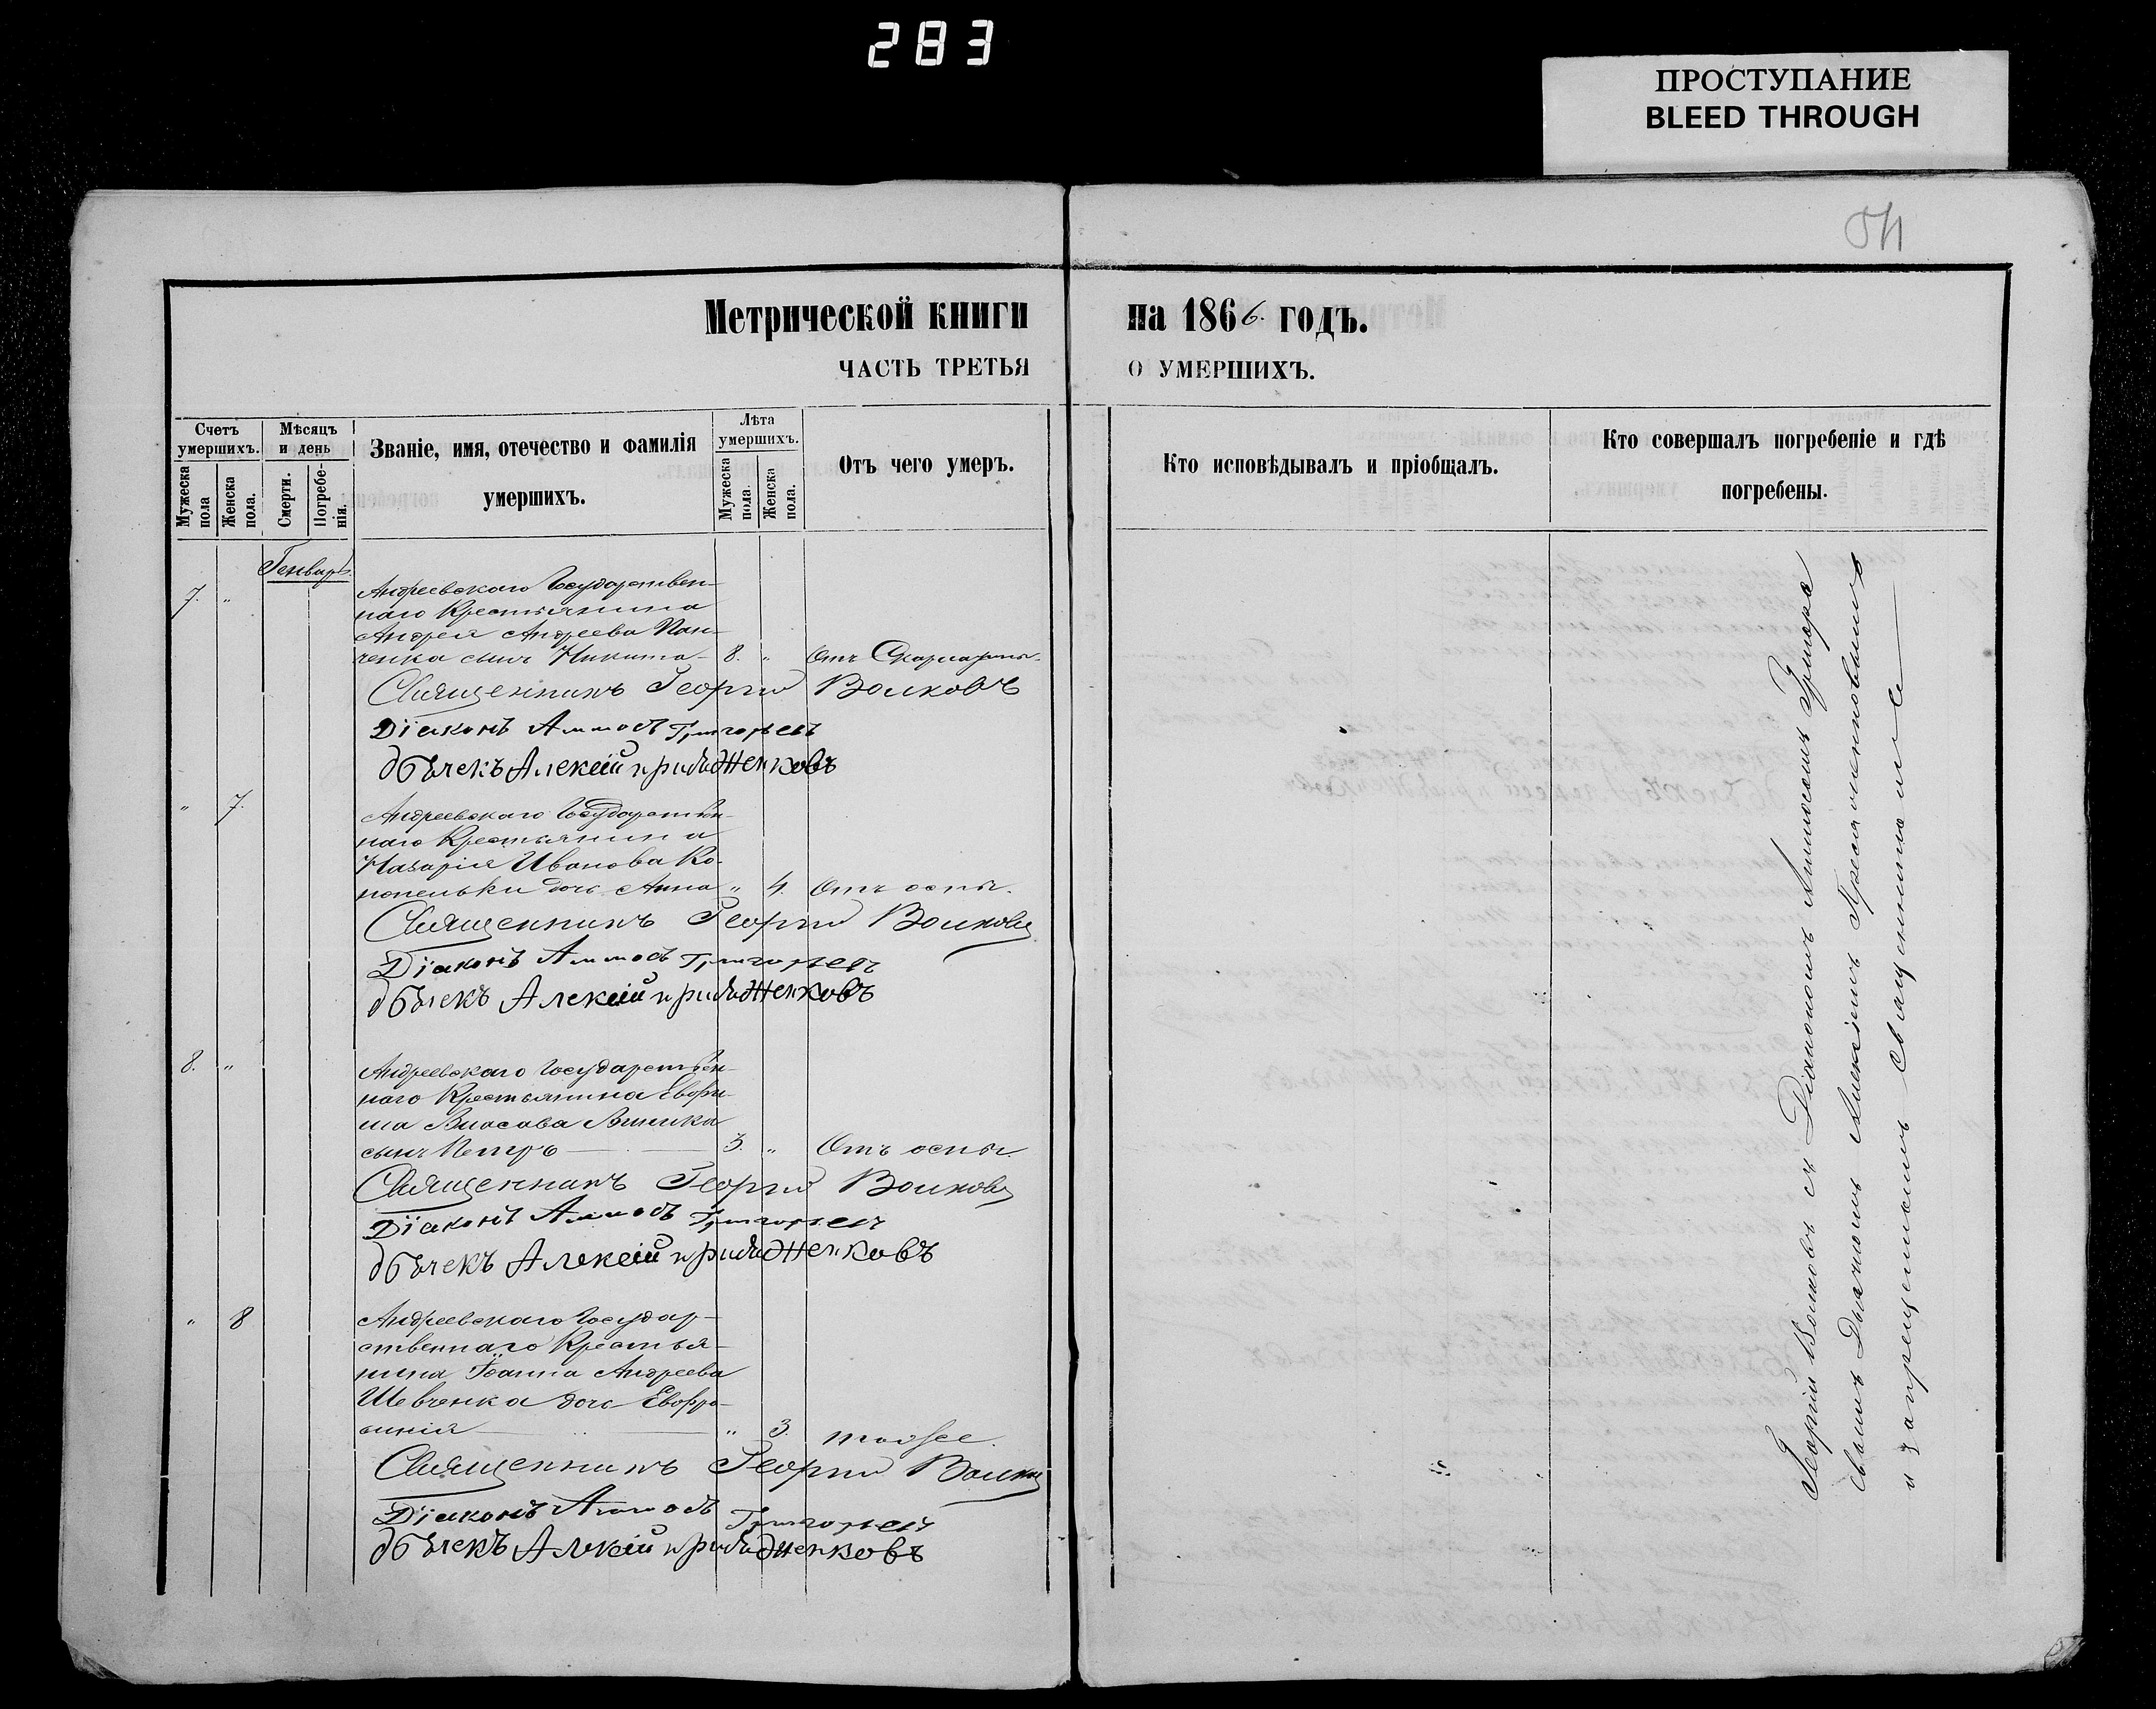 283
ПРОСТУПАНИЕ
BLEED THROUGH
Метрической книги на 1866. годъ.
ЧАСТЬ ТРЕТЬЯ О УМЕРШИХЪ.
Счетъ умершихъ.
Мужеска пола
Женска пола.
Мѣсяцъ и день
Смерти.
Погребенія.
Званіе, имя, отечество и фамилія умершихъ.
Лѣта умершихъ.
Мужеска пола.
Женска пола.
Отъ чего умеръ.
Кто исповѣдывалъ и пріобщалъ.
Кто совершалъ погребеніе и гдѣ погребены.
Генварь.
7. "
Андреевскаго Государствен-
наго Крестьянина
Андрея Андреева Пан-
ченка сынъ Никита 8. " Отъ Скарлатины.
Священникъ Георгій Волковъ
Діаконъ Аммосъ Григорьевъ
дьячекъ Алексій
" 7.
Андреевскаго Государствен-
наго Крестьянина
Назарія Иванова Ко-
нопельки дочь Анна " 4 Отъ оспы.
Священникъ Георгій Волковъ
Діаконъ Аммосъ Григорьевъ
дьячекъ Алексій
8. "
Андреевскаго Государствен-
наго Крестьянина Евфи-
ма Власова
сынъ Петръ 3. " Отъ оспы.
Священникъ Георгій Волковъ
Діаконъ Аммосъ Григорьевъ
дьячекъ Алексій
" 8
Андреевскаго Государ-
ственнаго Крестья-
нина Іоанна Андреева
Шевченка дочь Евфро-
синія " 3. тойже.
Священникъ Георгій Волковъ
Діаконъ Аммосъ Григорьевъ
дьячекъ Алексій
Георгій Волковъ съ Діакономъ Аммосомъ Григорье
вымъ Дьячкомъ Алексіемъ
и запрещеннымъ Священникомъ